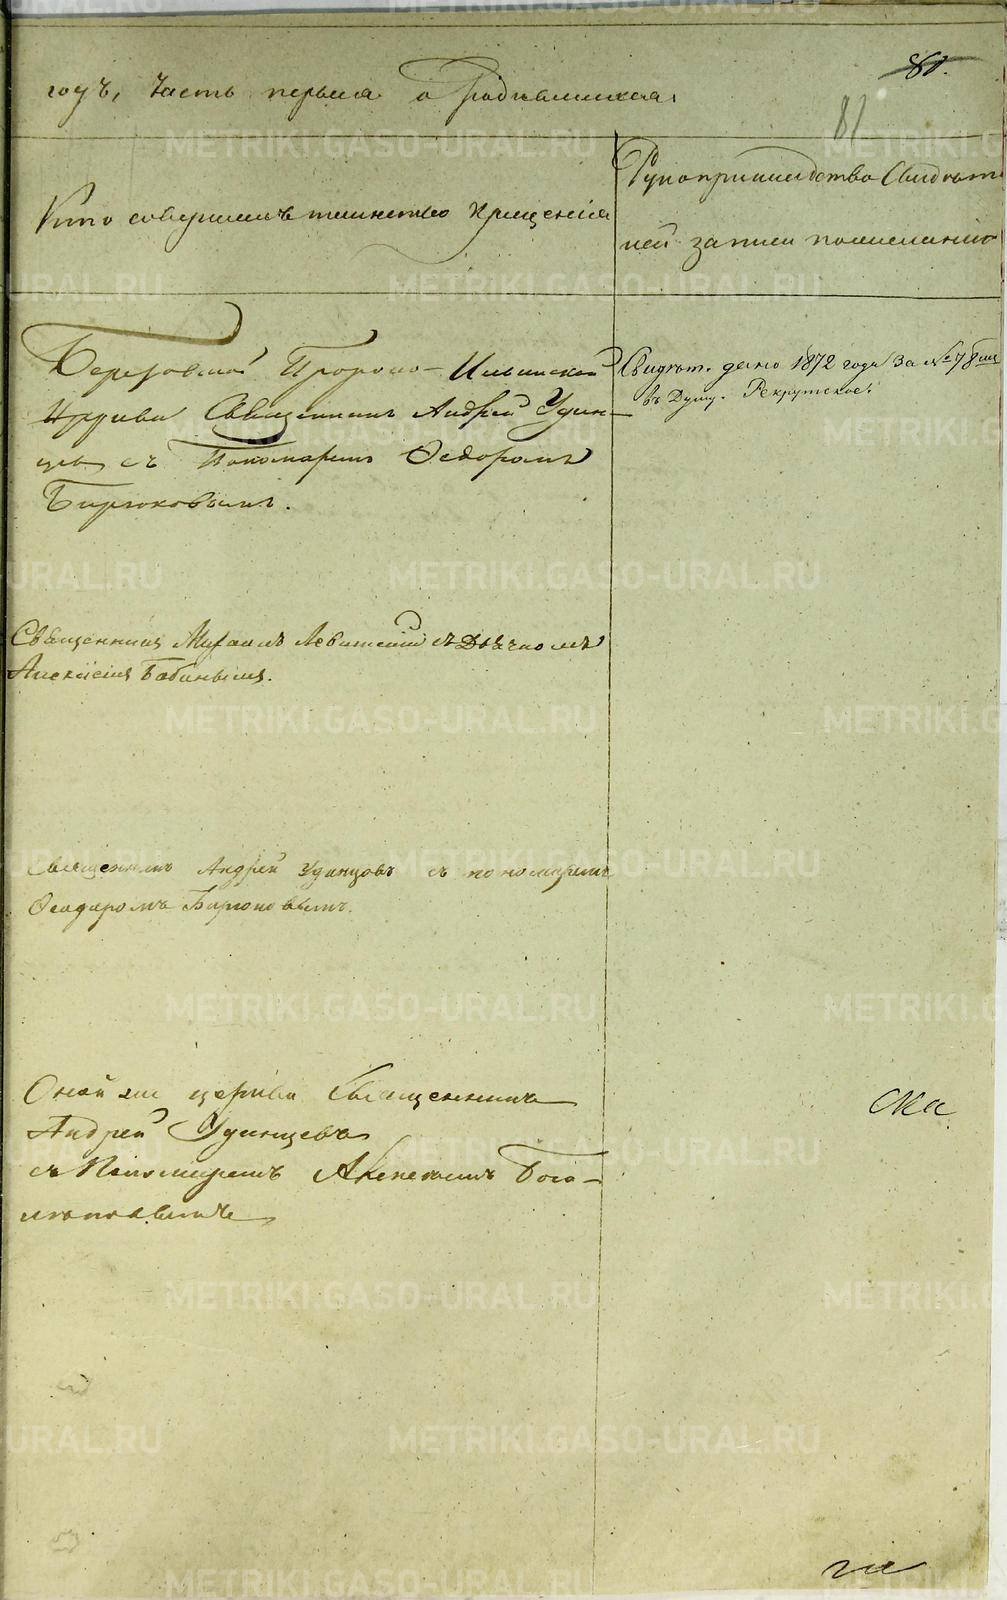 80.
81
годъ, часть первая о родившихся
Кто совершалъ таинство крещенiя
Рукоприкладство свидѣте
лей записи по желанiю
Березовской Пророко-Ильинской
церкви Священникъ Андрей Удин-
цевъ съ Пономаремъ Ѳедоромъ
Бирюковымъ.
Свидѣт. дано 1872 года за № 78
въ Думу. Рекрутское.
Священникъ Михаилъ Левитскiй съ Дьячкомъ
Алексiемъ Бабинымъ.
Священникъ Андрей Удинцовъ съ пономаремъ
Ѳеодоромъ Бирюковымъ.
Оной же церкви Священникъ
Андрей Удинцевъ
съ Пономаремъ Алексѣемъ Бого-
ска
ги
METRIKI.GASO-URAL.RU